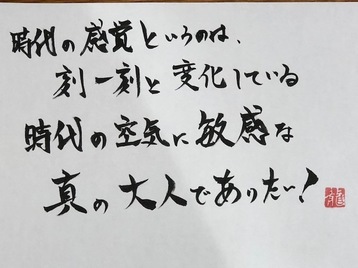 時代の感覚というのは、
刻一刻と変化している
時代の空気に敏感な
真の大人でありたい!